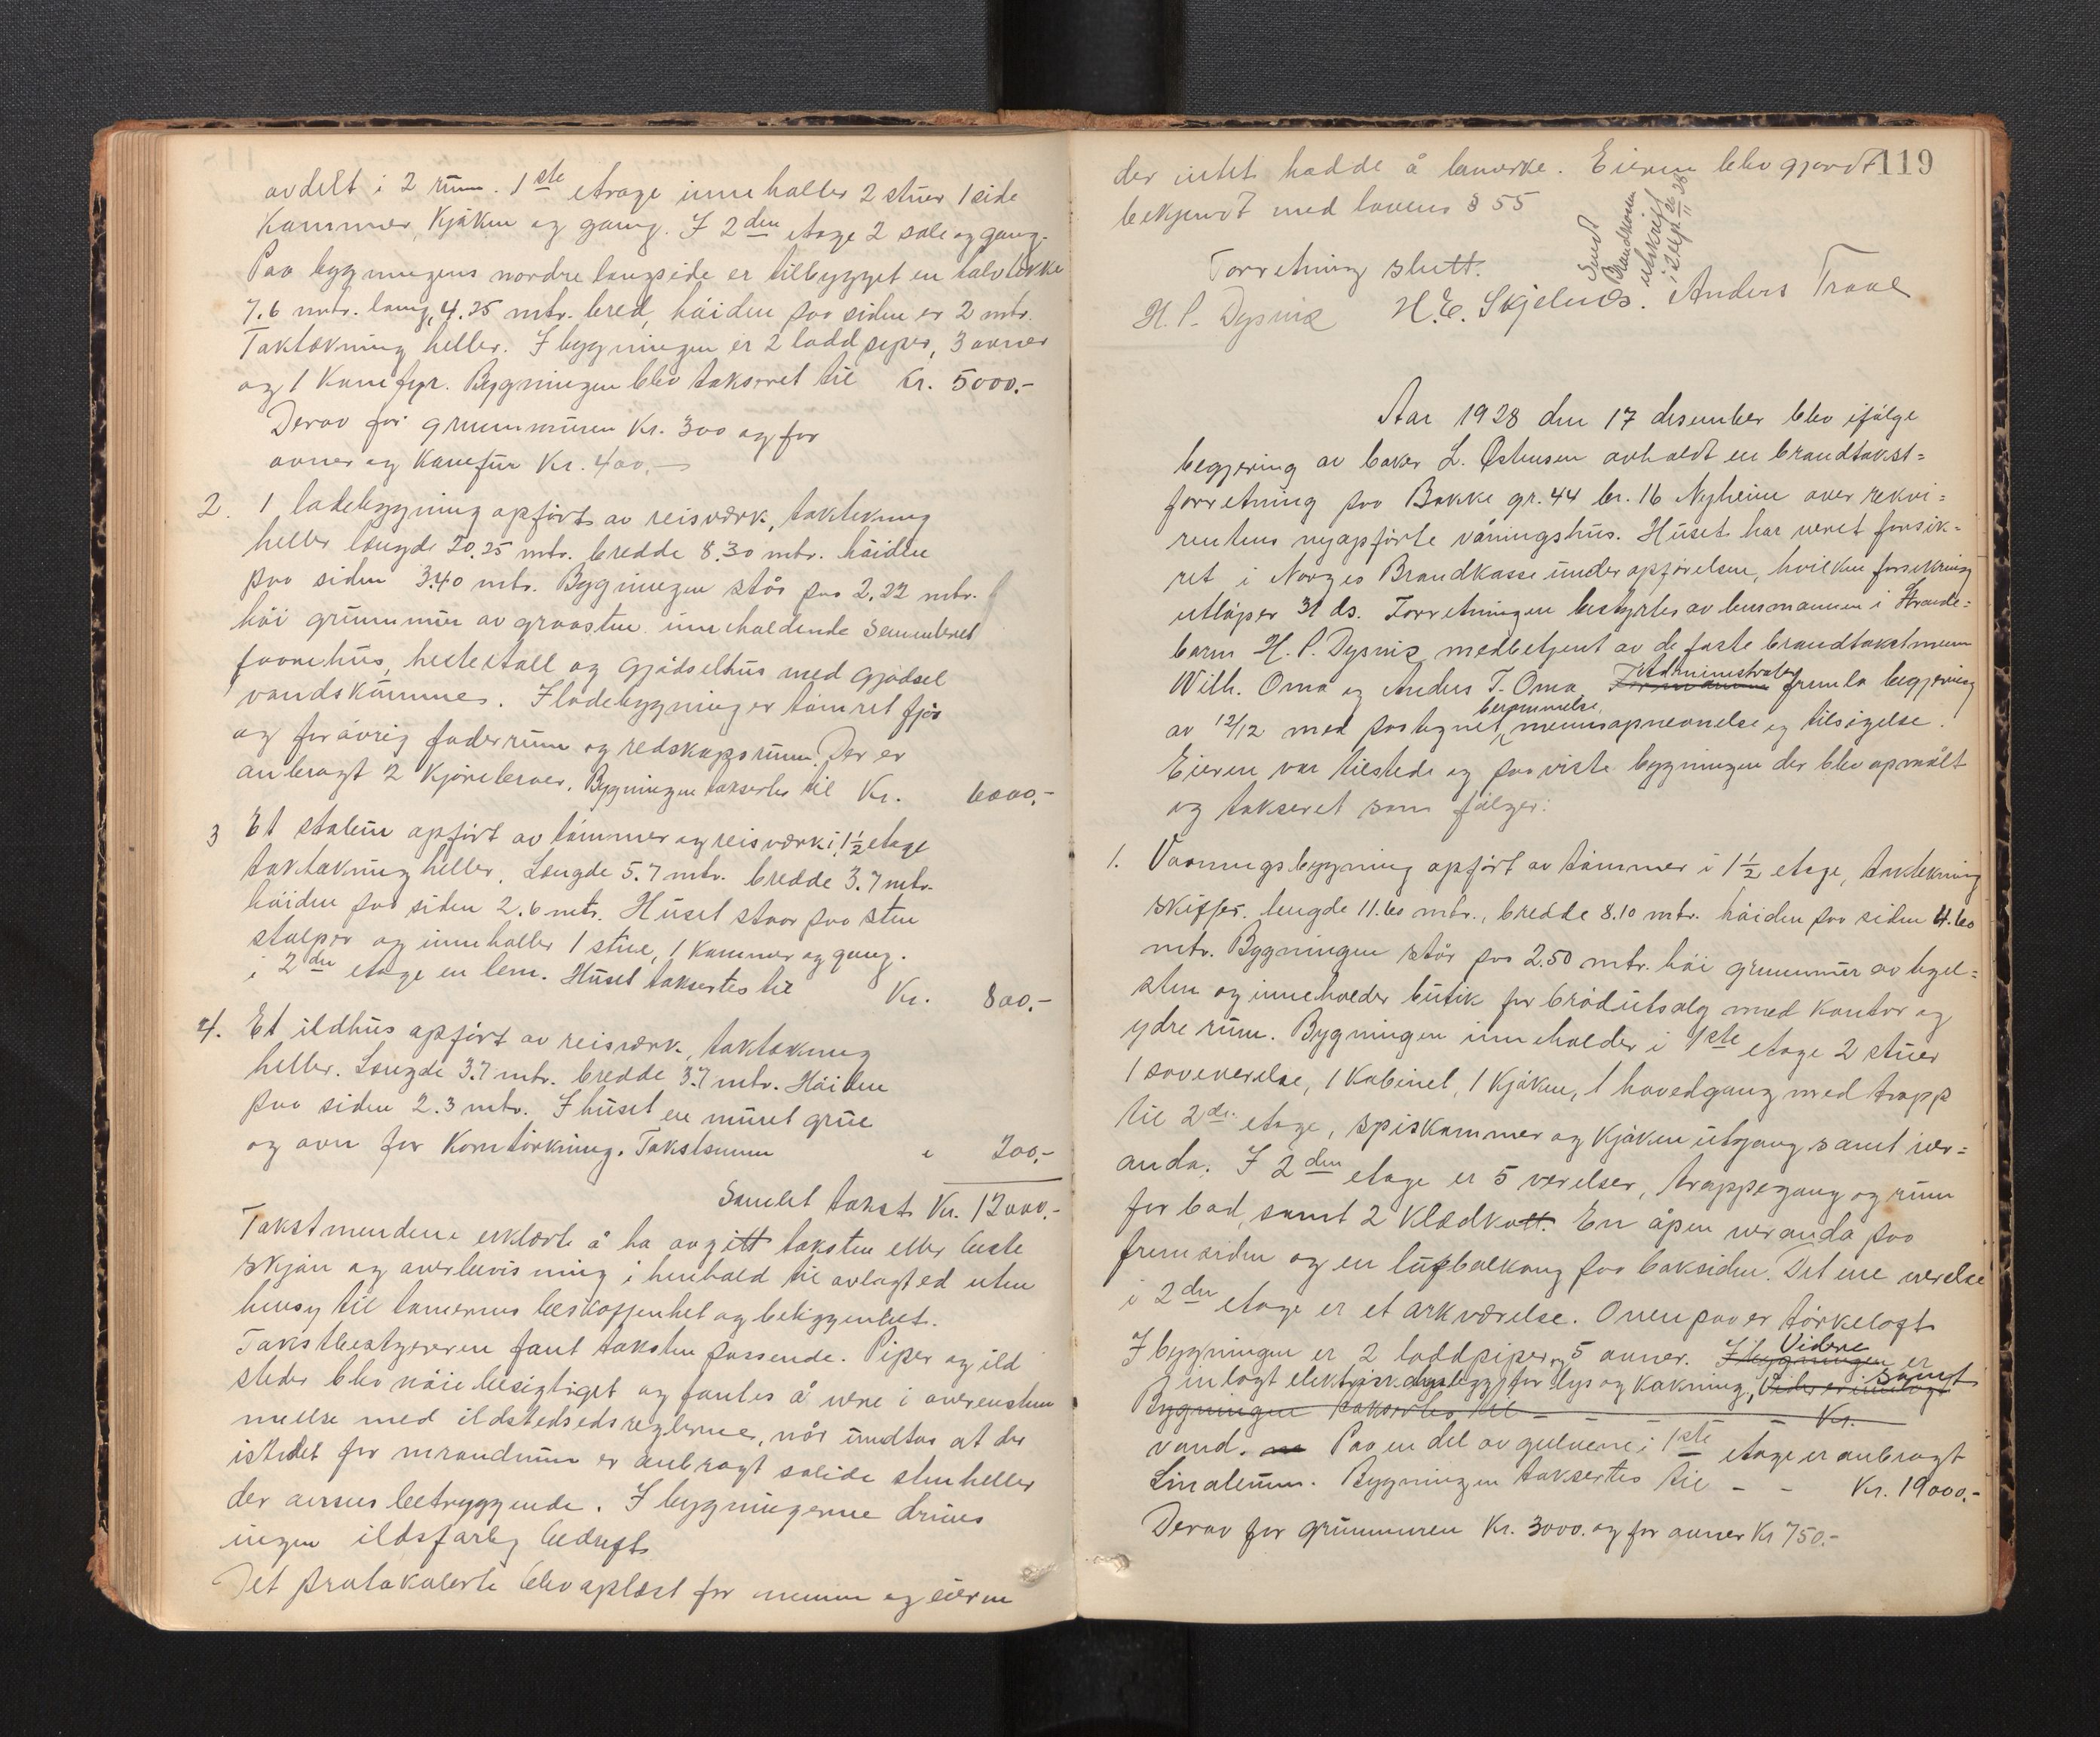 avdelt i 2 rum. 1ste etage inneholler 2 stuer 1 side
kammer, kjøken og gang. I 2den etage 2 sale og gang.
Paa bygningens nordre langside er tilbygget en halvtekke
7.6 mtr. lang, 4.25 mtr. bred, høiden paa siden er 2 mtr.
Taktækning heller. I bygningen er 2 lodd piper, 3 ovner
og 1 Kamfyr. Bygningen blev taksert til Kr. 5000.-
Derav for grunnmuren Kr. 300 og for
ovner og Kamfür Kr. 400.-
2. 1 ladebygning opført av reisværk, taktekning
heller længde 20.25 mtr. bredde 8.30 mtr. høiden
paa siden 3.40 mtr. Bygningen står paa 2.22 mtr.
høi grunnmur av graasten inneholdende
faarehus, hestestall og gjødselhus med gjødsel
vandskumme. I ladebygning er tømret fjøs
og forøvrig foderrum og redskapsrum. Der er
anbragt 2 kjørebroer. Bygningen taksertes til Kr. 6000.-
3 Et stabur opført av tømmer og reisværk i 1½ etage
taktækning heller. Længde 5.7 mtr. bredde 3.7 mtr.
høiden paa siden 2.6 mtr. Huset staar paa sten
stolper og inneholler 1 stue, 1 kammer og gang.
i 2den etage en lem. Huset taksertes til Kr. 800.-
4. Et ildhus opført av reisværk, taktækning
heller. Længde 3.7 mtr. bredde 3.7 mtr. Høiden
paa siden 2.3 mtr. I huset en muret grue
og ovn for Korntørkning. Takstsum " 200.-
Samlet takst Kr. 12000.-
Takstmendene erklærte å ha avgitt taksten etter beste
skjøn og overbevisning i henhold til avlagt ed uten
hensyn til tomternes beskaffenhet og beliggenhet.
Takstbestyreren fant taksten passende. Piper og ild
steder blev nøie besigtiget og fantes å være i overenstem
melse med ildstedsedsreglerne, når undtas at der
istedet for murandmur er anbragt solide stenheller
der ansees betryggende. I bygningerne drives
ingen ildsfarlig bedrift
Det protokolerte blev oplæst for mennene og eieren
119
der intet hadde å bemerke. Eieren blev gjordt
bekjendt med lovens § 55
Sendt
Brandkassen
utskrift
Forretning slutt.
H. P. Dysvig H. E. Skjelnes. Anders Traae
Aar 1928 den 17 desember blev ifølge
begjering av baker L. Østensen avholdt en brandtakst=
forretning paa Bakke gr. 44 br. 16 Nyheim over rekvi=
rentens nyopførte våningshus. Huset har veret forsik=
ret i Norges Brandkasse under opførelsen, hvilken forsikring
utløper 31 ds. Forretningen bestyrtes av lensmannen i Strande=
barm H. P. Dysvig medbetjent av de faste brandtakstmenn
Wilh. Oma og Anders T. Oma. Administrator fremla begjering
berammelse,
av 12/12 med paategnet mennsopnevnelse og tilsigelse.
Eieren var tilstede og paaviste bygningen der blev opmålt
og takseret som følger:
1. Vaaningsbygning opført av tømmer i 1½ etage, taktekning
skiffer. lengde 11.60 mtr., bredde 8.10 mtr. høiden paa siden 4.60
mtr. Bygningen står paa 2.50 mtr. høi grunnmur av tegel=
sten og inneholder butik for brødutsalg med kontor og
ydre rum. Bygningen inneholder i 1ste etage 2 stuer
1 soveverelse, 1 Kabinet, 1 kjøken, 1 hovedgang med trapp
til 2de etage, spiskammer og kjøken utgang samt ver=
anda. I 2den etage er 5 verelser, trappegang og rum
for bad, samt 2 klædkott. En åpen veranda paa
fremsiden og en luftbalkong paa baksiden. Det ene verelse
i 2den etage er et arkværelse. Ovenpaa er tørkeloft
I bygningen er 2 loddpiper og 5 ovner. I bygningen Videre er
inlagt elektrisk anlegg for lys og kokning, Videre er innlagt samt
Bygningen taksertes til - - - - Kr.
vand. Paa en del av gulvene i 1ste etage er anbragt
Linoleum. Bygningen taksertes til - - Kr. 19000.-
Derav for grunnmuren Kr. 3000. og for ovner Kr 750.-